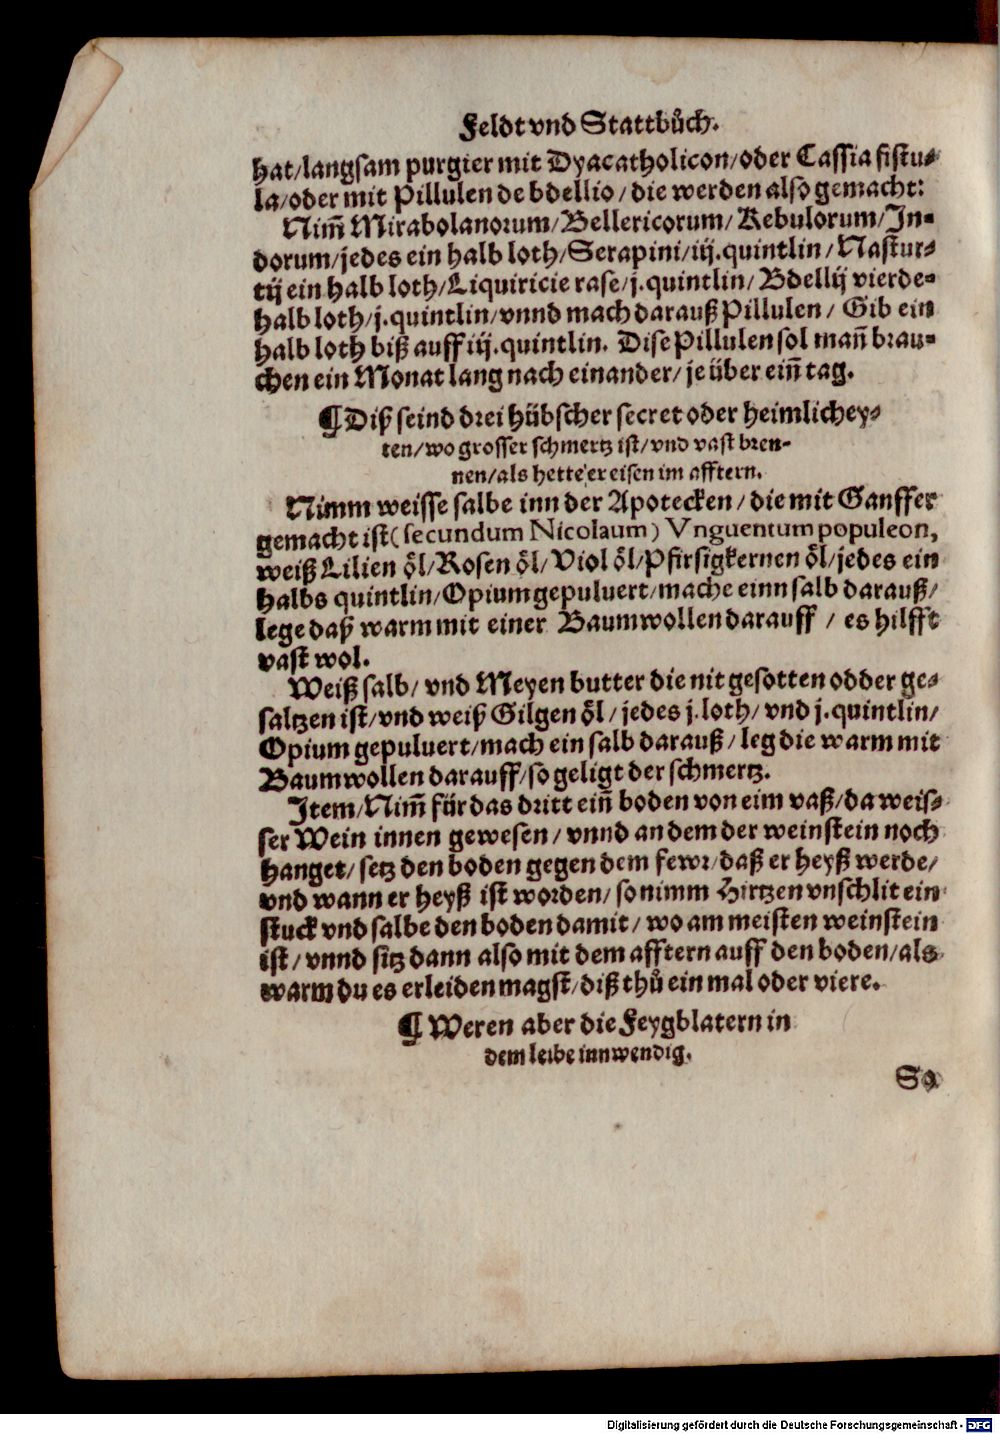 Feldt vnd Stattbůch.
hat/langsam purgier mit Dyacatholicon/oder Cassia fistu-
la/oder mit Pillulen de bdellio/die werden also gemacht:
Nim̃ Mirabolanorum/Bellericorum/Kebulorum/In-
dorum/jedes ein halb loth/Serapini/iij.quintlin/Nastur-
tij ein halb loth/Liquiricie rase/j.quintlin/Bdellij vierde-
halb loth/j.quintlin/vnnd mach darauß Pillulen/ Gib ein
halb loth biß auff iij.quintlin. Dise Pillulen sol man̄ brau-
chen ein Monat lang nach einander/je über ein̄ tag.
¶ Diß seind drei hübscher secret oder heimlichey-
ten/wo grosser schmertz ist/vnd vast bren-
nen/als hette er eisen im afftern.
Nimm weisse salbe inn der Apotecken/die mit Ganffer
gemacht ist(secundum Nicolaum) Vnguentum populeon,
weiß Lilien öl/Rosen öl/Viol öl/Pfirsigkernen öl/jedes ein
halbs quintlin/Opium gepuluert/mache einn salb darauß/
lege daß warm mit einer Baumwollen darauff/es hilfft
vast wol.
Weiß salb/vnd Meyen butter die nit gesotten odder ge-
saltzen ist/vnd weiß Gilgen öl/jedes j.loth/vnd j.quintlin/
Opium gepuluert/mach ein salb darauß/leg die warm mit
Baumwollen darauff/so geligt der schmertz.
Item/Nim̃ für das dritt ein̄ boden von eim vaß/da weis-
ser Wein innen gewesen/vnnd an dem der weinstein noch
hanget/setz den boden gegen dem fewr/daß er heyß werde/
vnd wann er heyß ist worden/so nimm Hirtzen vnschlit ein
stuck vnd salbe den boden damit/wo am meisten weinstein
ist/vnnd sitz dann also mit dem afftern auff den boden/als
warm du es erleiden magst/diß thů ein mal oder viere.
¶ Weren aber die Feygblatern in
dem leibe innwendig.
So
Digitalisierung gefördert durch die Deutsche Forschungsgemeinschaft - DFG